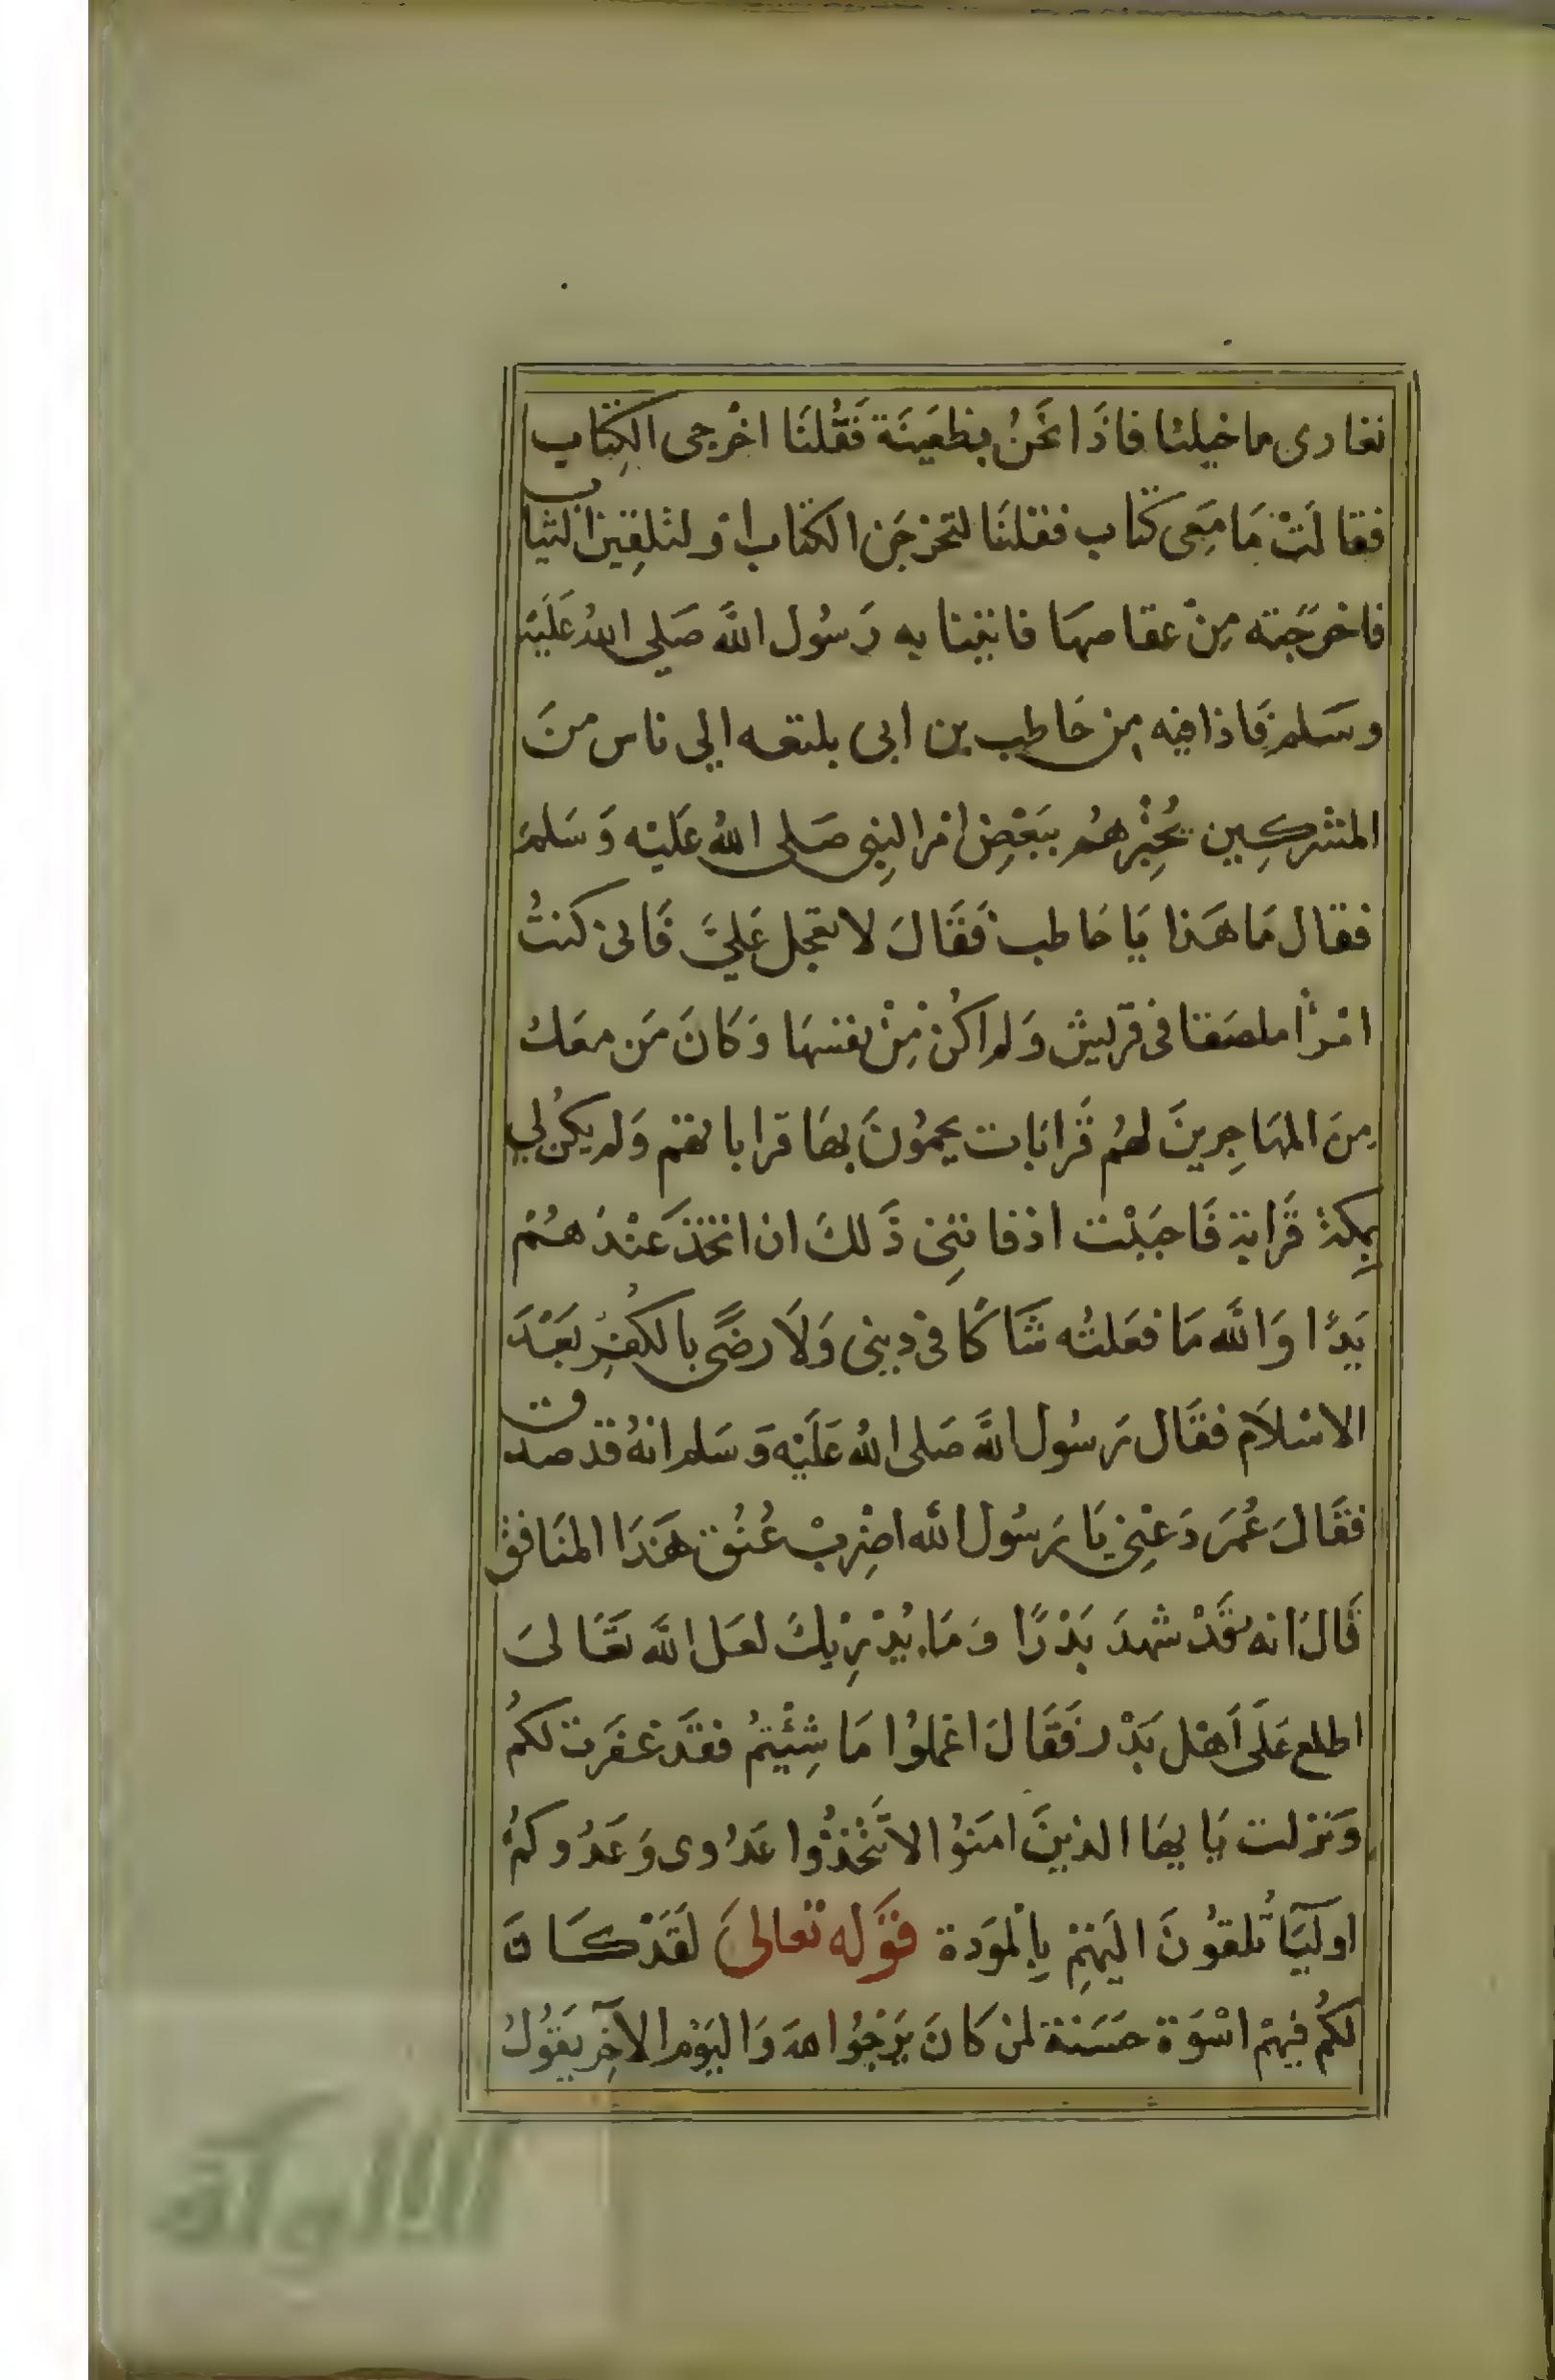 تعادى بنا خيلنا فاذَا نَحنُ بظعَينَة فَقُلنَا اخْرجى الكِتاب
فقالَتْ مَا مَعِى كتاب فقلنَا لتخرجَن الكتاب اوْ لتلقِين الثياب
فاخرَجَته مِنْ عقاصهَا فاتينا به رَسُول اللَّه صَلى اللهُ عَلَيْه
وسَلم فَاذا فيه مِن حَاطب بن ابى بلتعه الي ناس منَ
المشركِين يُخبِرهُم ببَعْضِ امْر النبِى صَلى اللهُ عَليْه وَسَلمَ
فقال مَا هَذا يَا حَاطب فَقَالَ لا تعجل عَليَّ فَانى كنتُ
امْرأً ملصَقا فى قريش وَلم اكُن مِنْ نفسهَا وَكَانَ مَن معَكَ
مِنَ المهَاجِرينَ لهُم قَرابَات يحموُنَ بهَا قراباتهم وَلم يكُن لي
بِمكة قَرابة فَاحبَبْت اذ فاتنِى ذَلكَ ان اتخذ عَنْدَهُمْ
يَدًا وَاللَّه مَا فعَلتُه شَاكًا فى دينى وَلاَ رضًى بالكُفرِ بَعْدَ
الاسْلاَم فقَال رَسُول اللَّه صَلى اللهُ عَلَيْه وَسَلم انهُ قد صدق
فقَالَ عُمَر دَعْنِى يَا رَسُول اللَّه اضْرِبْ عُنُق هَذَا المنَافق
قَالَ انه قَدْ شهدَ بَدْرًا وَمَا يُدْرِيْكَ لعَل اللَّه تعَالىَ
اطلع عَلَى اَهْل بَدْر فَقَالَ اعْملوُا مَا شِئْتمُ فقَد غفَرت لكُم
وَنزلت يَايهَا الذينَ امَنوُا لا تَتْخذُوا عَدُوى وَعَدُوكمُ
اوليَآ تُلقوُنَ اليَهْمِ بِالْمَودة قَوْله تعَالىَ لَقَدْ كَانَ
لكُم فِيهمْ اسْوَة حسَنة لمن كَانَ يَرْجُوا اللهَ وَاليَوْم الآخِر يَقوُل
الألوكة